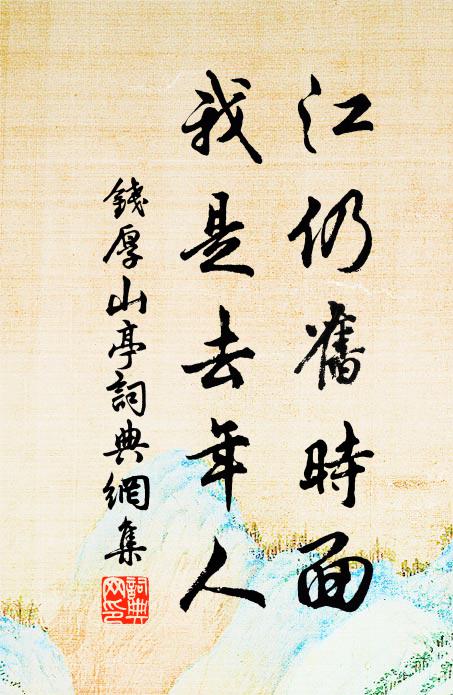 江仍舊時面
我是去年人
錢厚山亭詞典網集
詞典
网印